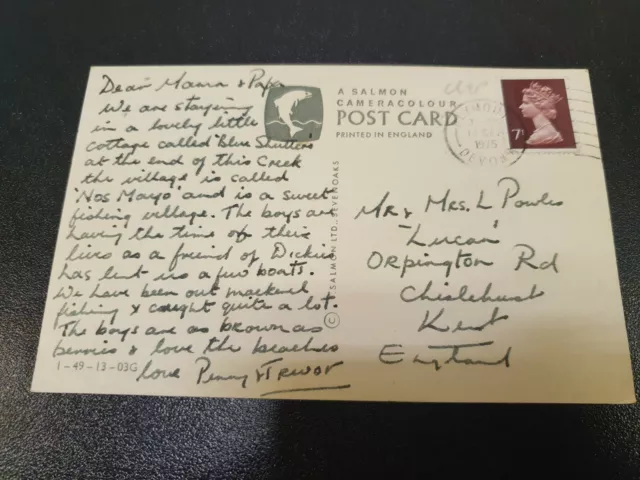 Dear Mama & Papa
We are staying
in a lovely little
cottage called 'Blue Shutters'
at the end of this Creek
the village is called
'Nos Mayo' and is a sweet
fishing village. The boys are
having the time of their
lives as a friend of Dickie
has lent us a few boats.
We have been out mackerel
fishing & caught quite a lot.
The boys are as brown as
berries & love the beaches
love Penny & Trevor
1-49-13-03G
A SALMON
CAMERACOLOUR
POST CARD
PRINTED IN ENGLAND
© J. SALMON LTD., SEVENOAKS
1975
DEVON
7P
Mr & Mrs. L Powles
'Lucan'
Orpington Rd
Chislehurst
Kent
England